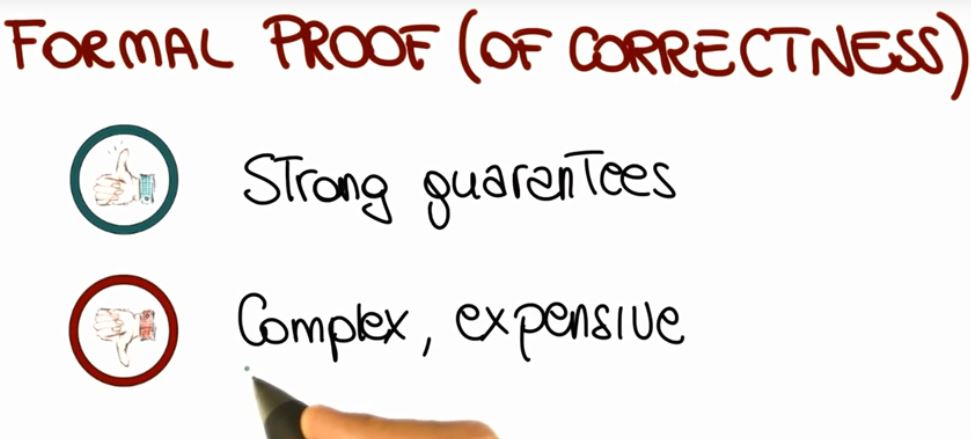 FORMAL PROOF (OF CORRECTNESS)
Strong guarantees
Complex, expensive